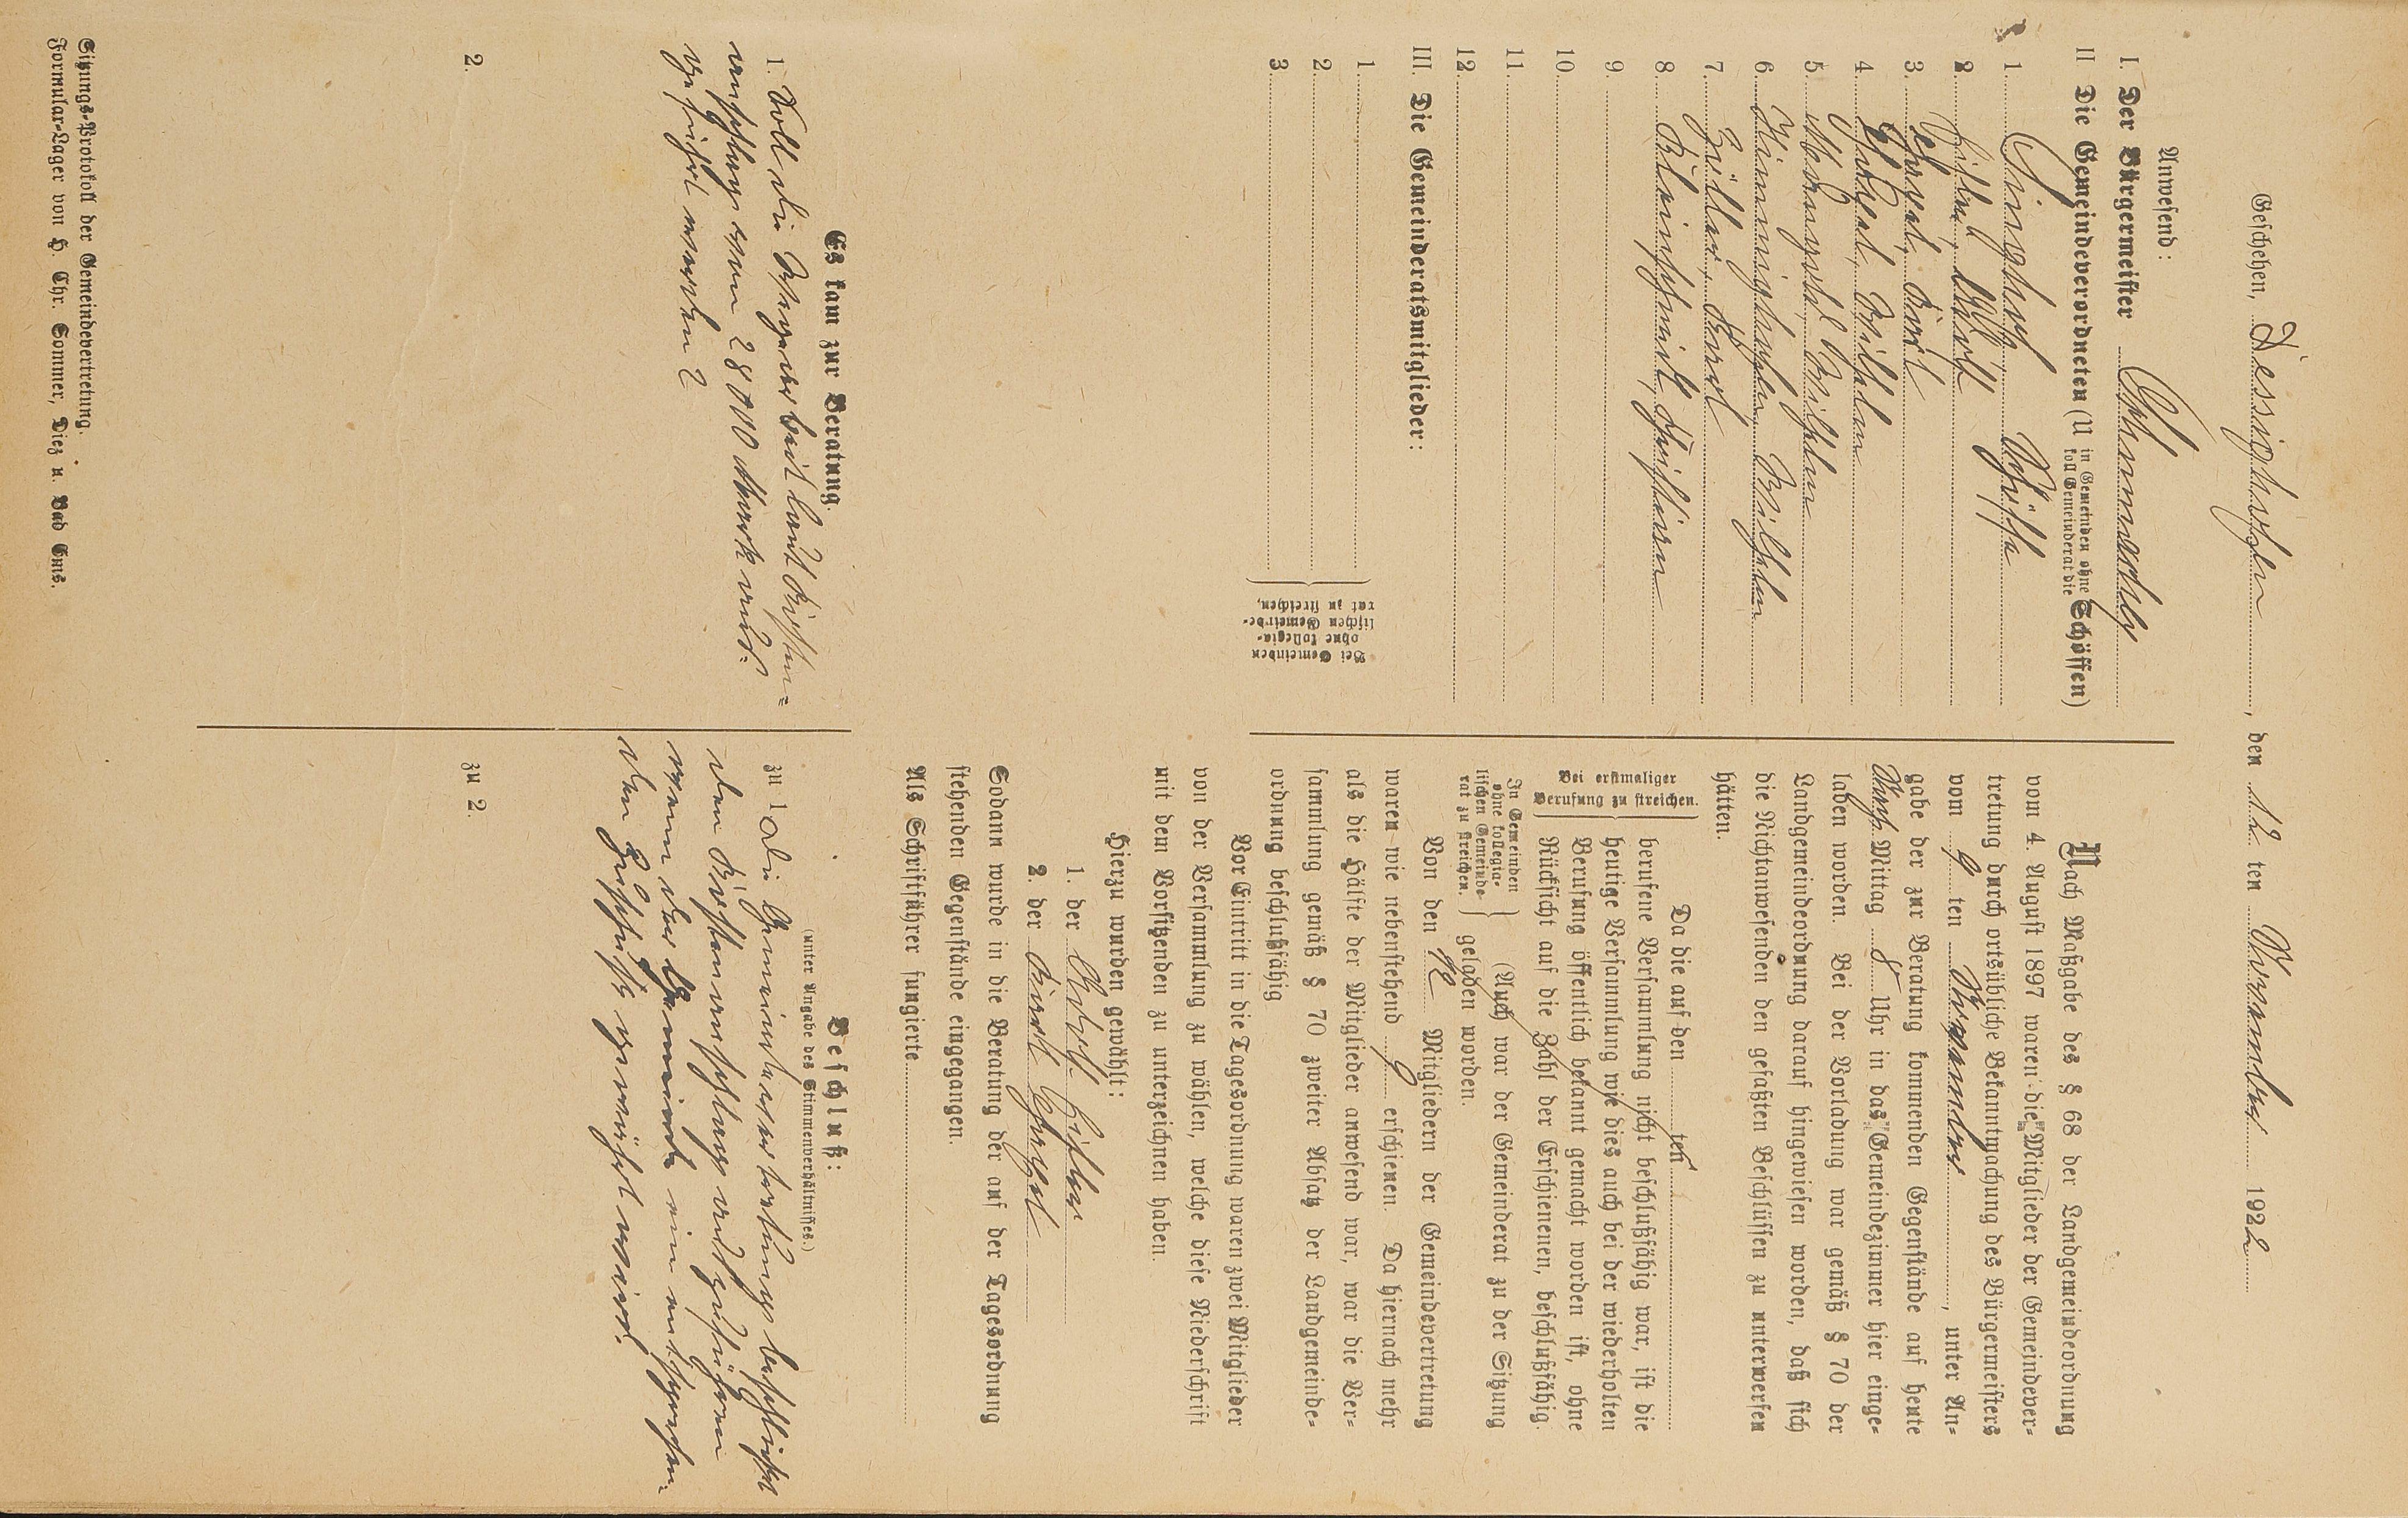 Geschehen, Dessighofen, den 12 ten November 1922
Anwesend:
I. Der Bürgermeister
II Die Gemeindeverordneten (U in Gemeinden ohne koll Gemeinderat die Schöffen)
1. Singhof Schöffe
2. Adolf
3. Karl
4. Wilhelm
5. Wilhelm
6. Wilhelm
7. Karl
8. Kleinschmidt, Christian
9.
10.
11.
12.
III. Die Gemeinderatsmitglieder:
1.
2.
3.
Bei Gemeinden
ohne kollegia-
lischen Gemeinde-
rat zu streichen.
Nach Maßgabe des § 68 der Landgemeindeordnung
vom 4. August 1897 waren die Mitglieder der Gemeindever-
tretung durch ortsübliche Bekanntmachung des Bürgermeisters
vom 9 ten November, unter An-
gabe der zur Beratung kommenden Gegenstände auf heute
Nach Mittag 8 Uhr in das Gemeindezimmer hier einge-
laden worden. Bei der Vorladung war gemäß § 70 der
Landgemeindeordnung darauf hingewiesen worden, daß sich
die Nichtanwesenden den gefaßten Beschlüssen zu unterwerfen
hätten.
Bei erstmaliger
Berufung zu streichen.
Da die auf den ten
berufene Versammlung nicht beschlußfähig war, ist die
heutige Versammlung wie dies auch bei der wiederholten
Berufung öffentlich bekannt gemacht worden ist, ohne
Rücksicht auf die Zahl der Erschienenen, beschlußfähig.
In Gemeinden
ohne kollegia-
lischen Gemeinde-
rat zu streichen.
(Auch war der Gemeinderat zu der Sitzung
geladen worden.
Von den 12 Mitgliedern der Gemeindevertretung
waren wie nebenstehend 9 erschienen. Da hiernach mehr
als die Hälfte der Mitglieder anwesend war, war die Ver-
sammlung gemäß § 70 zweiter Absatz der Landgemeinde-
ordnung beschlußfähig
Vor Eintritt in die Tagesordnung waren zwei Mitglieder
von der Versammlung zu wählen, welche diese Niederschrift
mit dem Vorsitzenden zu unterzeichnen haben.
Hierzu wurden gewählt:
1. der Adolf
2. der Karl
Sodann wurde in die Beratung der auf der Tagesordnung
stehenden Gegenstände eingegangen.
Als Schriftführer fungierte
Es kam zur Beratung.
1. Soll die Wegearbeit laut Kosten-
anschlag von 28000 Mark aus-
geführt werden?
2.
Beschluß:
(unter Angabe des Stimmenverhältnisses.)
zu 1 Die Gemeindevertretung beschließt
den Kostenanschlag auszuführen
wenn der Gemeinde ein entsprechen-
den Zuschuß gewährt wird.
zu 2.
Sitzungs-Protokoll der Gemeindevertretung.
Formular-Lager von H. Chr. Sommer, Diez u. Bad Ems.